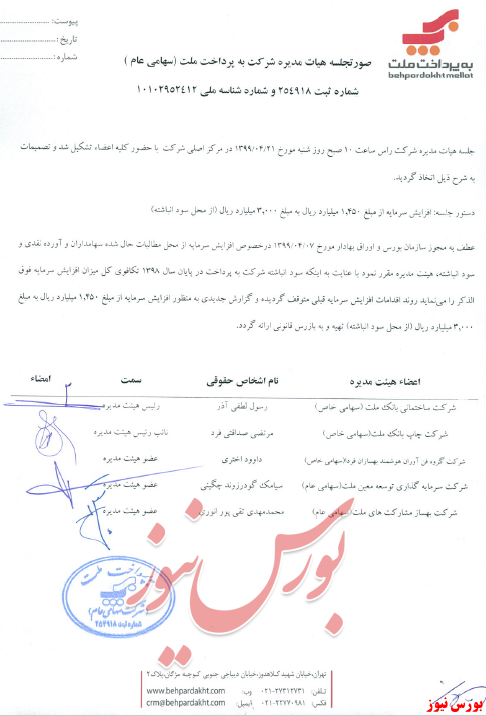 پیوست: ........................
تاریخ: ........................
شماره: ........................
به پرداخت ملت
behpardakht mellat
صورتجلسه هیات مدیره شرکت به پرداخت ملت (سهامی عام )
شماره ثبت ۲۵۴۹۱۸ و شماره شناسه ملی ۱۰۱۰۲۹۵۲۴۱۲
جلسه هیات مدیره شرکت راس ساعت ۱۰ صبح روز شنبه مورخ ۱۳۹۹/۰۴/۲۱ در مرکز اصلی شرکت با حضور کلیه اعضاء تشکیل شد و تصمیمات
به شرح ذیل اتخاذ گردید.
دستور جلسه: افزایش سرمایه از مبلغ ۱,۴۵۰ میلیارد ریال به مبلغ ۳,۰۰۰ میلیارد ریال (از محل سود انباشته)
عطف به مجوز سازمان بورس و اوراق بهادار مورخ ۱۳۹۹/۰۴/۰۷ درخصوص افزایش سرمایه از محل مطالبات حال شده سهامداران و آورده نقدی و
سود انباشته، هیئت مدیره مقرر نمود با عنایت به اینکه سود انباشته شرکت به پرداخت در پایان سال ۱۳۹۸ تکافوی کل میزان افزایش سرمایه فوق
الذکر را می‌نماید روند اقدامات افزایش سرمایه قبلی متوقف گردیده و گزارش جدیدی به منظور افزایش سرمایه از مبلغ ۱,۴۵۰ میلیارد ریال به مبلغ
۳,۰۰۰ میلیارد ریال (از محل سود انباشته) تهیه و به بازرس قانونی ارائه گردد.
اعضاء هیئت مدیره نام اشخاص حقوقی سمت امضاء
شرکت ساختمانی بانک ملت (سهامی خاص) رسول لطفی آذر رئیس هیئت مدیره
شرکت چاپ بانک ملت(سهامی خاص) مرتضی صداقتی فرد نائب رئیس هیئت مدیره
شرکت گروه فن آوران هوشمند بهسازان فردا(سهامی خاص) داوود اختری عضو هیئت مدیره
شرکت سرمایه گذاری توسعه معین ملت(سهامی عام) سیامک گودرزوند چگینی عضو هیئت مدیره
شرکت بهساز مشارکت های ملت(سهامی عام) محمدمهدی تقی پور انوری عضو هیئت مدیره
بورس نیوز
به پرداخت ملت
(شرکت سهامی عام)
شماره ثبت ۲۵۴۹۱۸
تهران، خیابان شهید کلاهدوز، خیابان دیباجی جنوبی کوچه مژگان، پلاک۲
تلفن: ۰۲۱-۲۷۳۱۲۷۳۱ وب: www.behpardakht.com
فکس: ۰۲۱-۲۲۷۷۰۹۸۱ ایمیل: crm@behpardakht.com
بورس نیوز